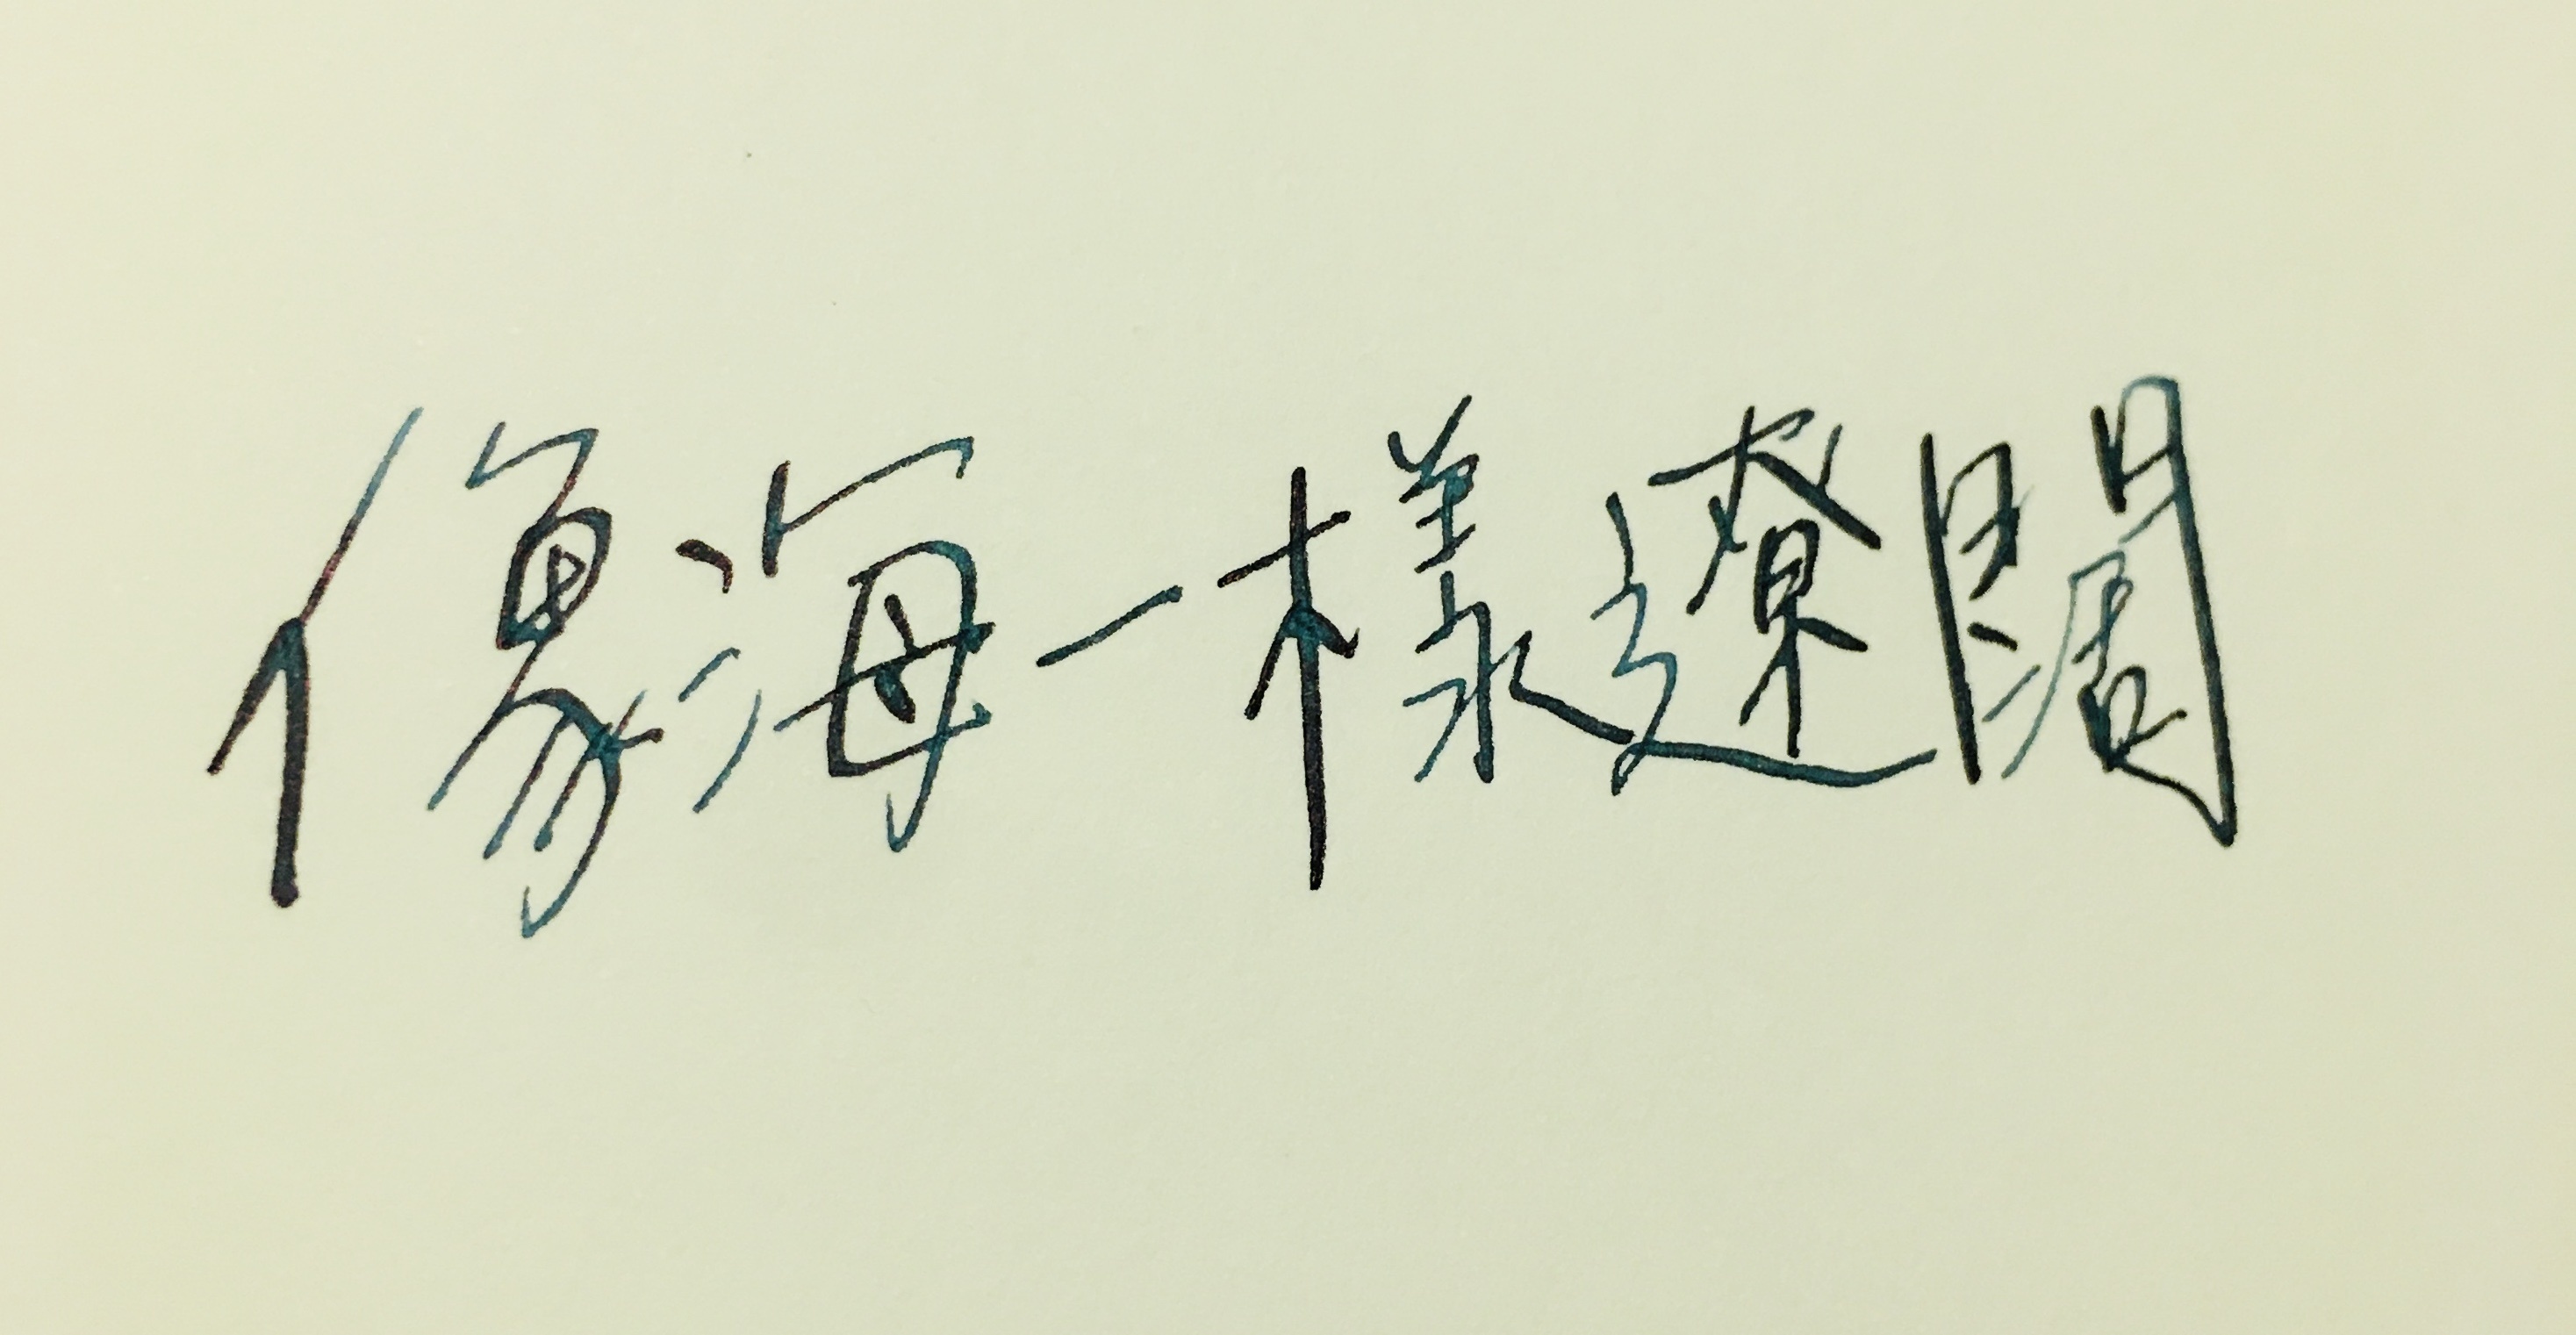 像海一樣遼闊